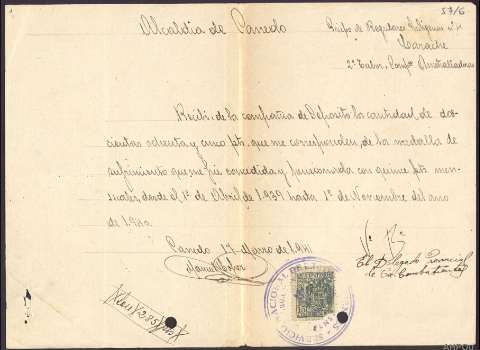 57/6
Alcaldia de Canedo
Grupo de Regulares Indigenas nº 4
Larache
2º Tabor. Compª Ametralladoras
Recibi de la compañia de Deposito la cantidad, de dos-
cientas ochenta y cinco pts. que me corresponden, de la medalla de
sufrimiento que me fué concedida y pensionada con quince pts men-
suales, desde el 1º de Abril de 1.939 hasta 1º de Noviembre del año
de 1.940.
Canedo 17 Marzo de 1.941
Manuel
Vº Bº
El Delegado Provincial
de Ex-Combatientes
SERVICIO